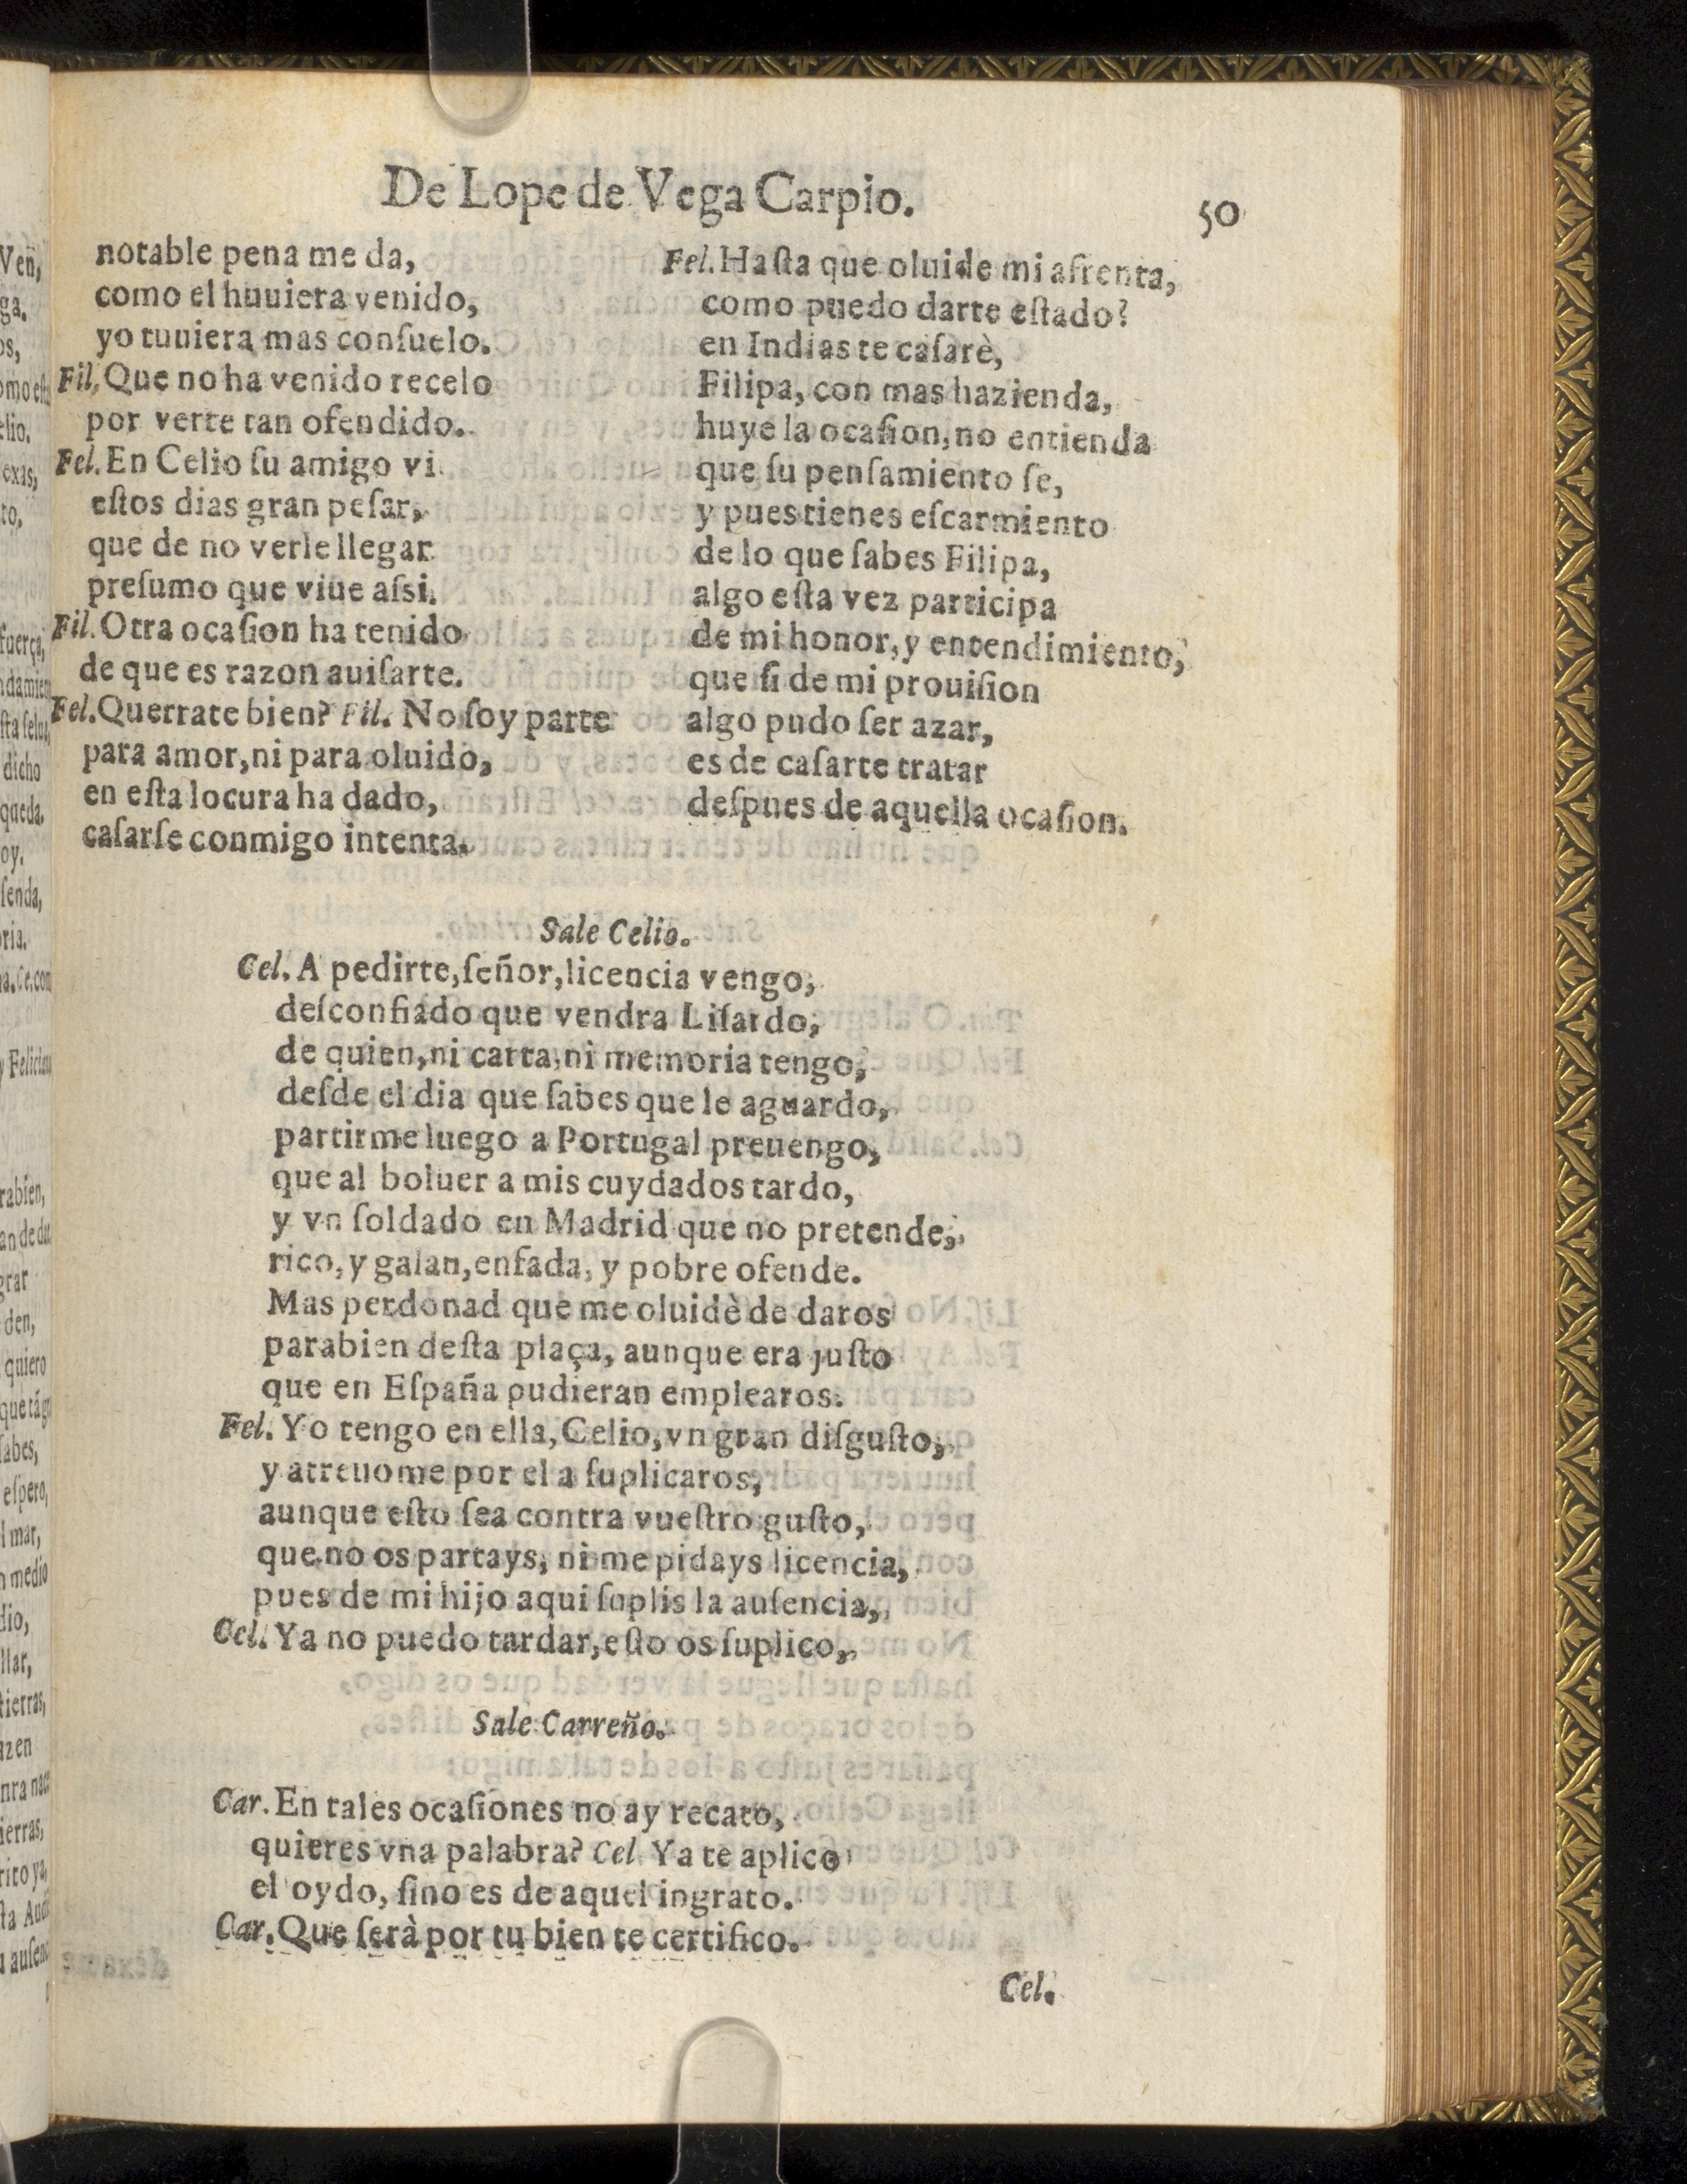 De Lope de Vega Carpio.
50
notable pena me da,
como el huuiera venido,
yo tuuiera mas conſuelo.
Fil, Que no ha venido recelo
por verte tan ofendido.
Fel. En Celio ſu amigo vi
eſtos dias gran peſar,
que de no verle llegar
preſumo que viue aſsi.
Fil. Otra ocaſion ha tenido
de que es razon auiſarte.
Fel. Querrate bien? Fil. No ſoy parte
para amor, ni para oluido,
en eſta locura ha dado,
caſarſe conmigo intenta.
Fel. Haſta que oluide mi afrenta,
como puedo darte eſtado?
en Indias te caſarè,
Filipa, con mas hazienda,
huye la ocaſion, no entienda
que ſu penſamiento ſe,
y pues tienes eſcarmiento
de lo que ſabes Filipa,
algo eſta vez participa
de mi honor, y entendimiento,
que ſi de mi prouiſion
algo pudo ſer azar,
es de caſarte tratar
deſpues de aquella ocaſion.
Sale Celio.
Cel. A pedirte, ſeñor, licencia vengo,
deſconfiado que vendra Liſardo,
de quien, ni carta, ni memoria tengo,
deſde el dia que ſabes que le aguardo,
partirme luego a Portugal preuengo,
que al boluer a mis cuydados tardo,
y vn ſoldado en Madrid que no pretende,
rico, y galan, enfada, y pobre ofende.
Mas perdonad que me oluidè de daros
parabien deſta plaça, aunque era juſto
que en Eſpaña pudieran emplearos.
Fel. Yo tengo en ella, Celio, vn gran diſguſto,
y atreuome por el a ſuplicaros,
aunque eſto ſea contra vueſtro guſto,
que no os partays, ni me pidays licencia,
pues de mi hijo aqui ſuplis la auſencia,
Cel. Ya no puedo tardar, eſto os ſuplico,
Sale Carreño.
Car. En tales ocaſiones no ay recato,
quieres vna palabra? Cel Ya te aplico
el oydo, ſino es de aquel ingrato.
Car. Que ſerà por tu bien te certifico.
Cel.